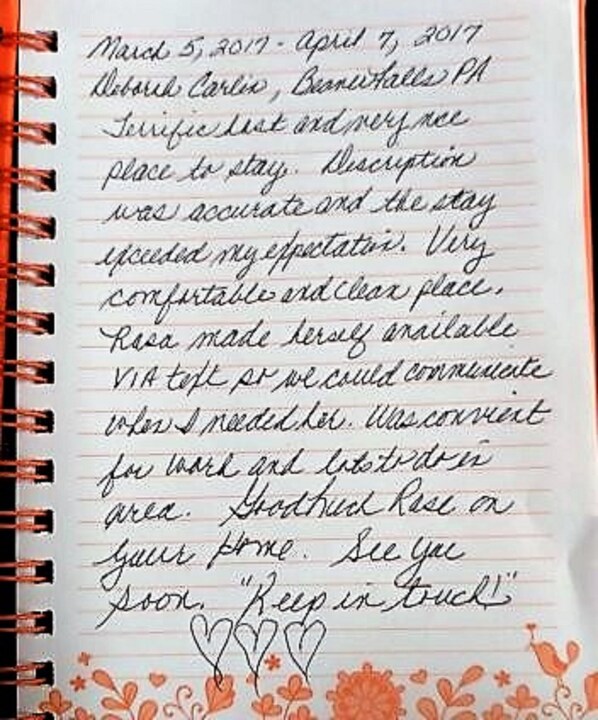 March 5, 2017 - April 7, 2017
Deborah Carlin, Beaver Falls PA
Terrific host and very nice
place to stay. Description
was accurate and the stay
exceeded my expectation. Very
comfortable and clean place.
Rosa made herself available
VIA text so we could communicate
when I needed her. Was convient
for work and lots to do in
area. Good luck Rose on
your home. See you
soon. "Keep in touch!"